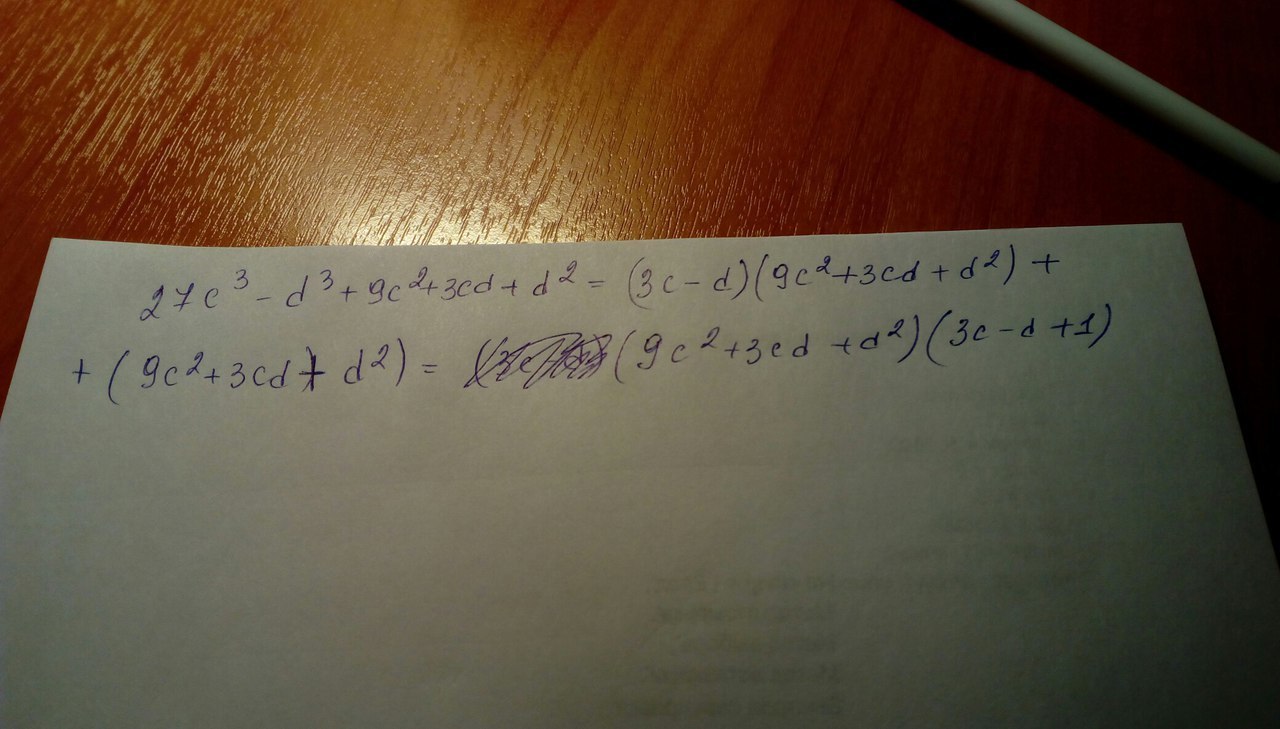 27c³ - d³ + 9c² + 3cd + d² = (3c - d)(9c² + 3cd + d²) +
+ (9c² + 3cd + d²) = (9c² + 3cd + d²)(3c - d + 1)